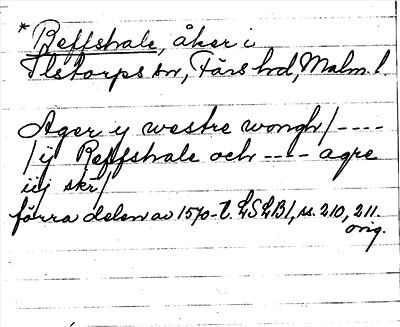 * Reffshale, åker i
Ilstorps sn, Färs hd, Malm. l.
Ager y westre wongh/----
/ij Reffshale och ---- agre
iij skr/
förra delen av 1570-t. LSLB1, ss. 210, 211.
orig.